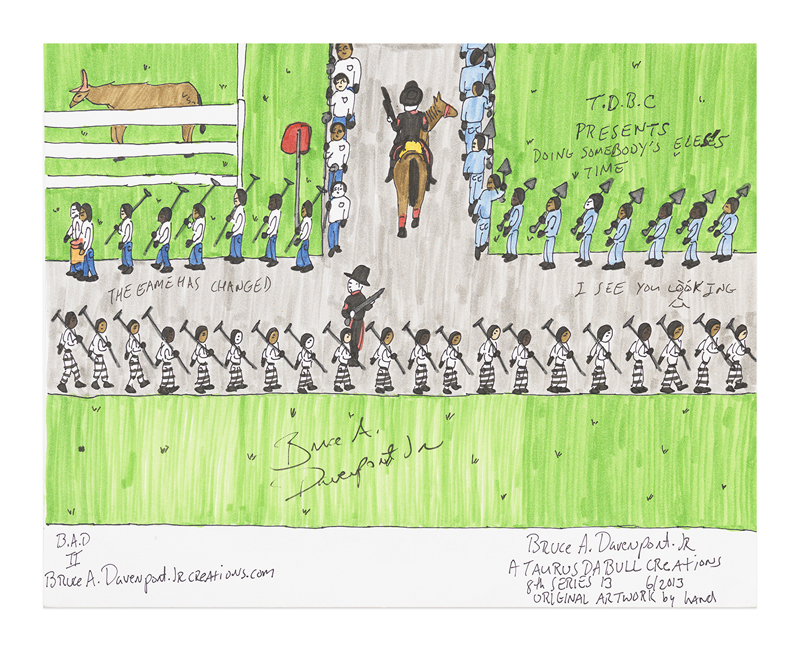 T.D.B.C
PRESENTS
DOING SOMEBODY'S ELESS
TIME
THE GAME HAS CHANGED
I SEE YOU LOOKING
Bruce A.
Davenport Jr
B.A.D
II
BRUCE A. DAVENPORT.JRCREATIONS.COM
BRUCE A. DAVENPORT.JR
A TAURUS DA BULL CREATIONS
8th SERIES 13 6/2013
ORIGINAL ARTWORK by hand